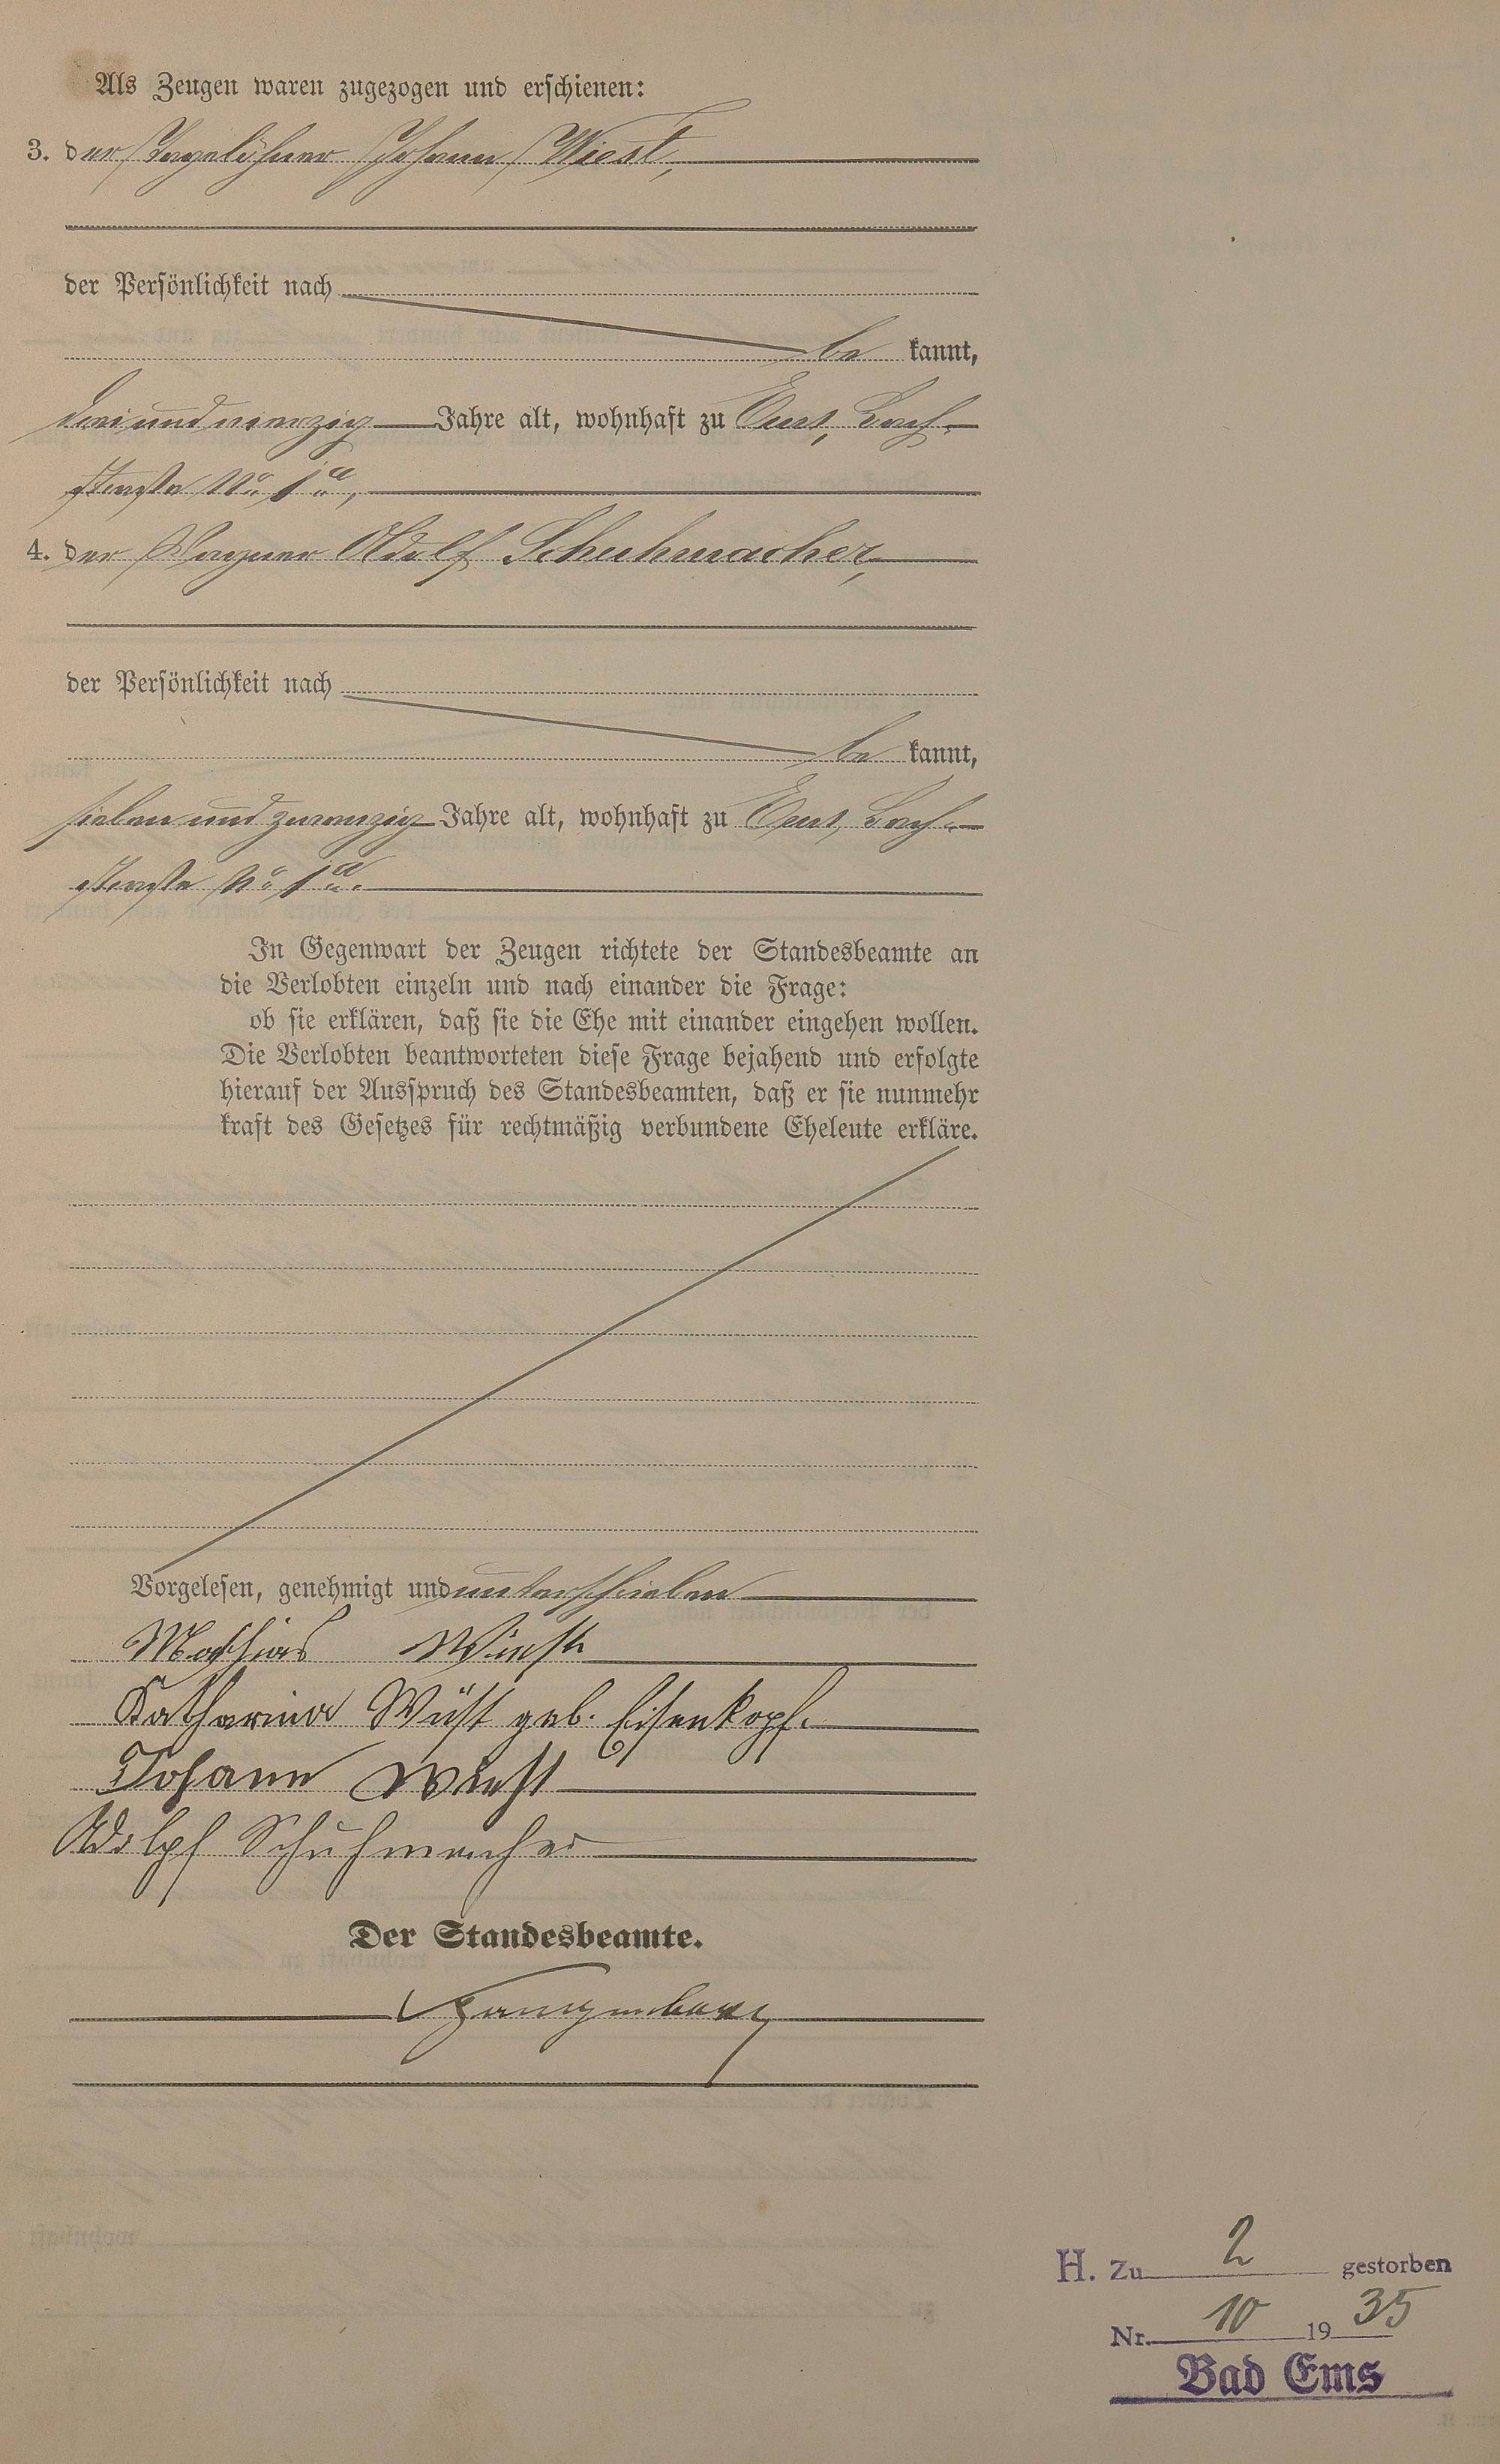 Als Zeugen waren zugezogen und erschienen:
3. der Tagelöhner Johann Wiest,
der Persönlichkeit nach
be kannt,
drei und vierzig Jahre alt, wohnhaft zu Ems, Bach-
straße No 1a,
4. der Wagner Adolf Schuhmacher,
der Persönlichkeit nach
be kannt,
sieben und zwanzig Jahre alt, wohnhaft zu Ems, Bach-
straße No 1a.
In Gegenwart der Zeugen richtete der Standesbeamte an
die Verlobten einzeln und nach einander die Frage:
ob sie erklären, daß sie die Ehe mit einander eingehen wollen.
Die Verlobten beantworteten diese Frage bejahend und erfolgte
hierauf der Ausspruch des Standesbeamten, daß er sie nunmehr
kraft des Gesetzes für rechtmäßig verbundene Eheleute erkläre.
Vorgelesen, genehmigt und unterschrieben
Mathias
Katharina Wüst geb. Eisenkopf.
Johann Wiest
Adolpf Schuhmacher
Der Standesbeamte.
H. Zu 2 gestorben
Nr. 10 19 35
Bad Ems